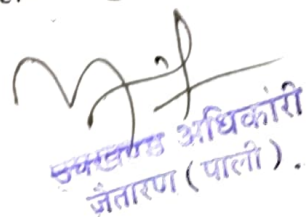 उपखण्ड अधिकारी
जैतारण (पाली).